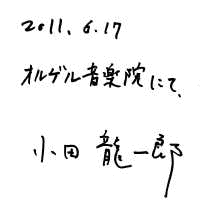 2011. 6.17
オルゲル音楽院にて、
小田 龍一郎